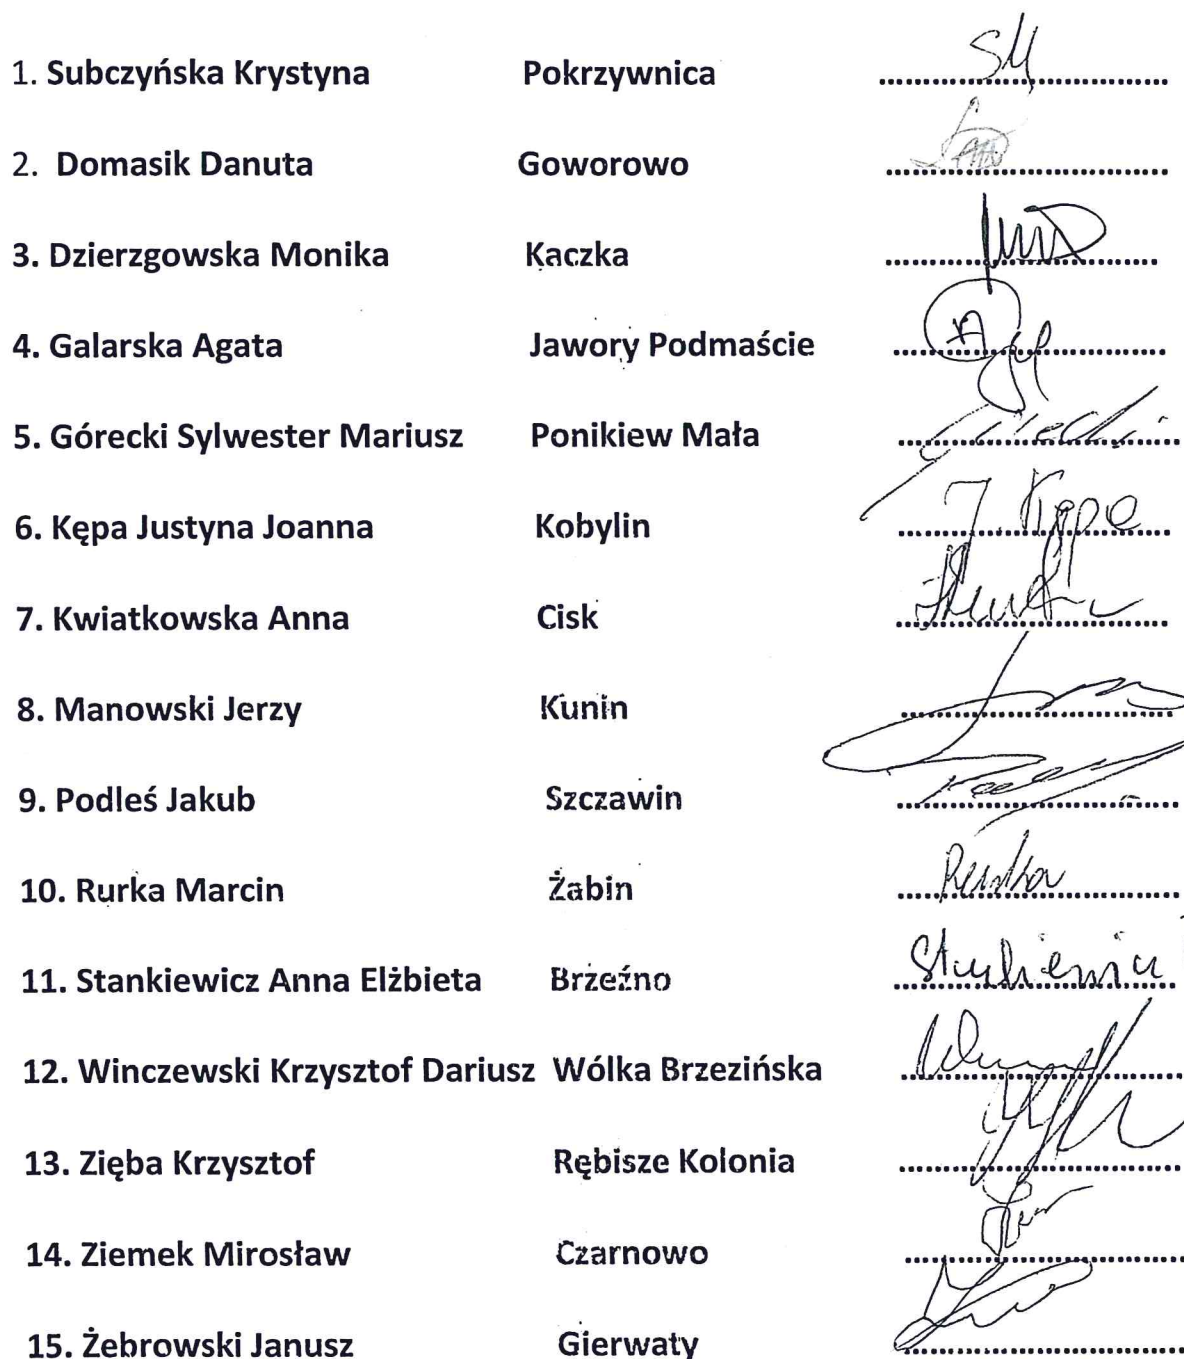 1. Subczyńska Krystyna Pokrzywnica
2. Domasik Danuta Goworowo
3. Dzierzgowska Monika Kaczka
4. Galarska Agata Jawory Podmaście
5. Górecki Sylwester Mariusz Ponikiew Mała
6. Kępa Justyna Joanna Kobylin J. Kępa
7. Kwiatkowska Anna Cisk
8. Manowski Jerzy Kunin
9. Podleś Jakub Szczawin
10. Rurka Marcin Żabin
11. Stankiewicz Anna Elżbieta Brzeźno
12. Winczewski Krzysztof Dariusz Wólka Brzezińska
13. Zięba Krzysztof Rębisze Kolonia
14. Ziemek Mirosław Czarnowo
15. Żebrowski Janusz Gierwaty